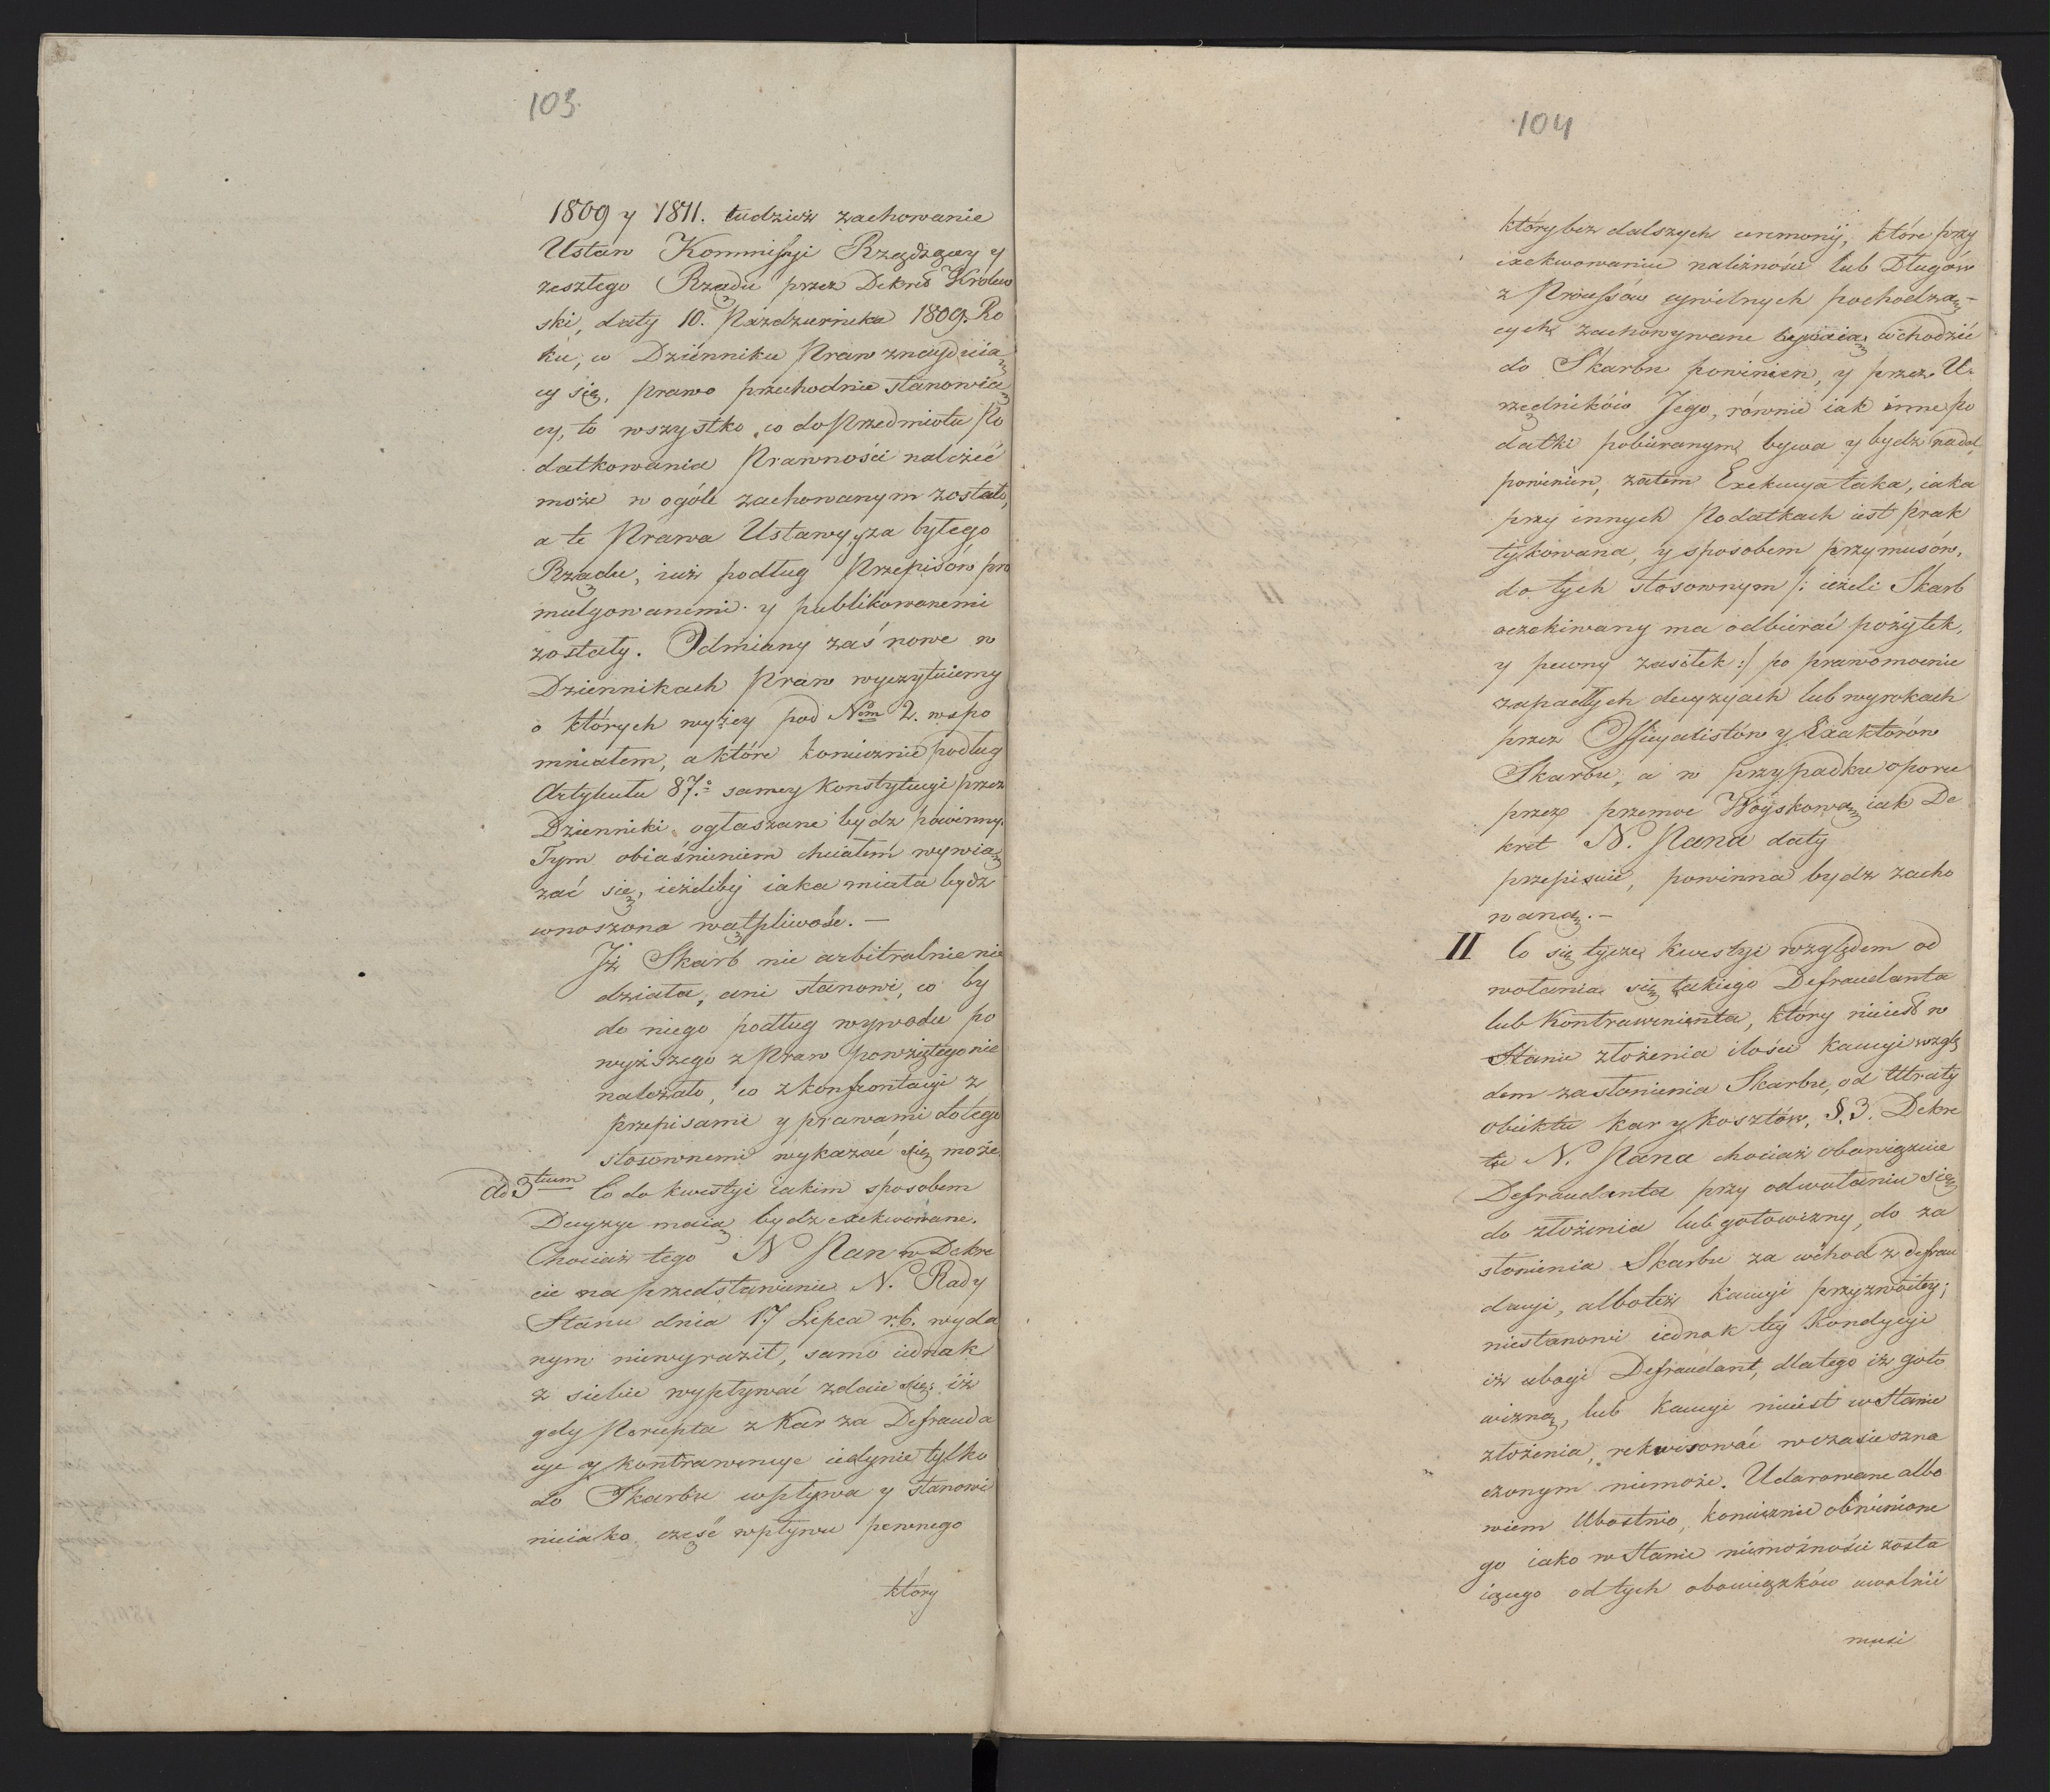 103.
1809 y 1811. tudzież zachowanie
Ustaw Kommissyi Rządzącey y
zeszłego Rządu przez Dekret Krolew
ski, daty 10. Pazdziernika 1809. Ro
ku, w Dzienniku Praw znayduią
cy się, prawo przechodnie stanowią
cy, to wszystko co do Przedmiotu Po
datkowania Prawności należeć
może w ogóle zachowanym zostało,
a te Prawa Ustawy, y za byłego
Rządu, iuż podług Przepisów pro
mulgowanemi y publikowanemi
zostały. Odmiany zaś nowe w
Dziennikach Praw wyczytuiemy
o których wyżey pod Nem 2. wspo
mniałem, a które koniecznie podług
Artykułu 87.o samey Konstytucyi przez
Dzienniki ogłaszane bydz powinny.
Tym obiaśnieniem chciałem wywią
zać się, ieżeliby iaka miała bydz
wnoszona wątpliwość. —
Iż Skarb nie arbitralnie nie
działa, ani stanowi, co by
do niego podług wywodu po
wyższego z Praw powziętego nie
należało, co z konfrontacyi z
przepisami y prawami do tego
stosownemi wykazać się może.
ad 3tium Co do kwestyi iakim sposobem
Decyzye maią bydz exekwowane.
Chociaż tego N Pan w Dekre
cie na przedstawienie N. Rady
Stanu dnia 17 Lipca r.b. wyda
nym niewyraził, samo iednak
z siebie wypływać zdaie się, iż
gdy Percepta z Kar za Defrauda
cye y kontrawencye iedynie tylko
do Skarbu wpływa y stanowi
nieiako część wpływu pewnego
który
104
który bez dalszych ceremonij, które przy
exekwowaniu należności lub Długów
z Processów cywilnych pochodzą-
cych zachowywane bywaią wchodzić
do Skarbu powinien, y przez U-
rzędników Jego, równie iak inne po
datki pobieranym bywa y bydz nadal
powinien, zatem Exekucya taka, iaka
przy innych Podatkach iest prak
tykowana, y sposobem przymusów,
do tych stosownym /: ieżeli Skarb
oczekiwany ma odbierać pożytek,
y pewny zasiłek :/ po prawomocnie
zapadłych decyzyach lub wyrokach
przez Officyalistów y Exaktorów
Skarbu, a w przypadku oporu
przez przemoc Woyskową iak De
kret N. Pana daty
przepisuie, powinna bydz zacho
waną. —
II Co się tycze kwestyi względem od
wołania się takiego Defraudanta
lub Kontrawenienta, który nieiest w
Stanie złożenia ilości kaucyi wzglę
dem zasłonienia Skarbu, od Utraty
obiektu kar y kosztów, §. 3. Dekre
tu N. Pana chociaż obowięzuie
Defraudanta przy odwołaniu się
do złożenia lub gotowizny, do za
słonienia Skarbu za wchod z defrau
dacyi, albo też kaucyi przyzwoitey;
niestanowi iednak tey Kondycyi
iż ubogi Defraudant, dlatego iż goto
wizną, lub kaucyi nieiest w Stanie
złożenia, rekwirować w czasie ozna
czonym niemoże. Udarowane albo
wiem Ubostwo, koniecznie obwinione
go iako w Stanie niemożności zosta
iącego od tych obowiązków uwolnić
musi